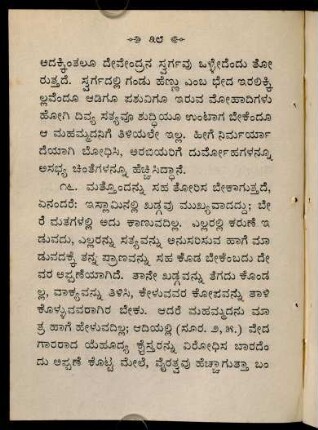 ೩೮
ಅದಕ್ಕಿಂತಲೂ ದೇವೇಂದ್ರನ ಸ್ವರ್ಗವು ಒಳ್ಳೇದೆಂದು ತೋ
ರುತ್ತದೆ. ಸ್ವರ್ಗದಲ್ಲಿ ಗಂಡು ಹೆಣ್ಣು ಎಂಬ ಭೇದ ಇರಲಿಕ್ಕಿ
ಲ್ಲವೆಂದೂ ಆಡಿಗೂ ಪಶುವಿಗೂ ಇರುವ ಮೋಹಾದಿಗಳು
ಹೋಗಿ ದಿವ್ಯ ಸತ್ಯವೂ ಶುದ್ಧಿಯೂ ಉಂಟಾಗ ಬೇಕೆಂದೂ
ಆ ಮಹಮ್ಮದನಿಗೆ ತಿಳಿಯಲೇ ಇಲ್ಲ. ಹೀಗೆ ನಿರ್ಮರ್ಯಾ
ದೆಯಾಗಿ ಬೋಧಿಸಿ, ಅರಬಿಯರಿಗೆ ದುರ್ಮೋಹಗಳನ್ನೂ
ಅಸಭ್ಯ ಚಿಂತೆಗಳನ್ನೂ ಹೆಚ್ಚಿಸಿದ್ದಾನೆ.
೧೬. ಮತ್ತೊಂದನ್ನು ಸಹ ತೋರಿಸ ಬೇಕಾಗುತ್ತದೆ,
ಏನಂದರೆ: ಇಸ್ಲಾಮಿನಲ್ಲಿ ಖಡ್ಗವು ಮುಖ್ಯವಾದದ್ದು; ಬೇ
ರೆ ಮತಗಳಲ್ಲಿ ಅದು ಕಾಣುವದಿಲ್ಲ. ಎಲ್ಲರಲ್ಲಿ ಕರುಣೆ ಇ
ಡುವದು, ಎಲ್ಲರನ್ನು ಸತ್ಯವನ್ನು ಅನುಸರಿಸುವ ಹಾಗೆ ಮಾ
ಡುವದಕ್ಕೆ ತನ್ನ ಪ್ರಾಣವನ್ನು ಸಹ ಕೊಡ ಬೇಕೆಂಬದು ದೇ
ವರ ಅಪ್ಪಣೆಯಾಗಿದೆ. ತಾನೇ ಖಡ್ಗವನ್ನು ತೆಗದು ಕೊಂಡ
ಲ್ಲ, ವಾಕ್ಯವನ್ನು ತಿಳಿಸಿ, ಕೇಳುವವರ ಕೋಪವನ್ನು ತಾಳಿ
ಕೊಳ್ಳುವವರಾಗಿರ ಬೇಕು. ಆದರೆ ಮಹಮ್ಮದನು ಮಾ
ತ್ರ ಹಾಗೆ ಹೇಳುವದಿಲ್ಲ; ಆದಿಯಲ್ಲಿ (ಸೂರ. ೨, ೫.) ವೇದ
ಗಾರರಾದ ಯೆಹೂದ್ಯ ಕ್ರೈಸ್ತರನ್ನು ವಿರೋಧಿಸ ಬಾರದೆಂ
ದು ಅಪ್ಪಣೆ ಕೊಟ್ಟ ಮೇಲೆ, ವೈರತ್ವವು ಹೆಚ್ಚಾಗುತ್ತಾ ಬಂ